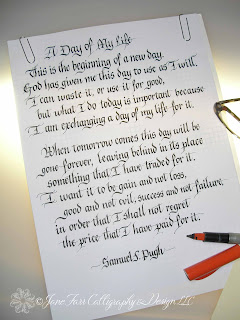 A Day of My Life
This is the beginning of a new day.
God has given me this day to use as I will.
I can waste it, or use it for good,
but what I do today is important because
I am exchanging a day of my life for it.
When tomorrow comes this day will be
gone forever, leaving behind in its place
something that I have traded for it.
I want it to be gain and not loss,
good and not evil, success and not failure,
in order that I shall not regret
the price that I have paid for it.
Samuel S. Pugh
© Jane Farr Calligraphy & Design LLC